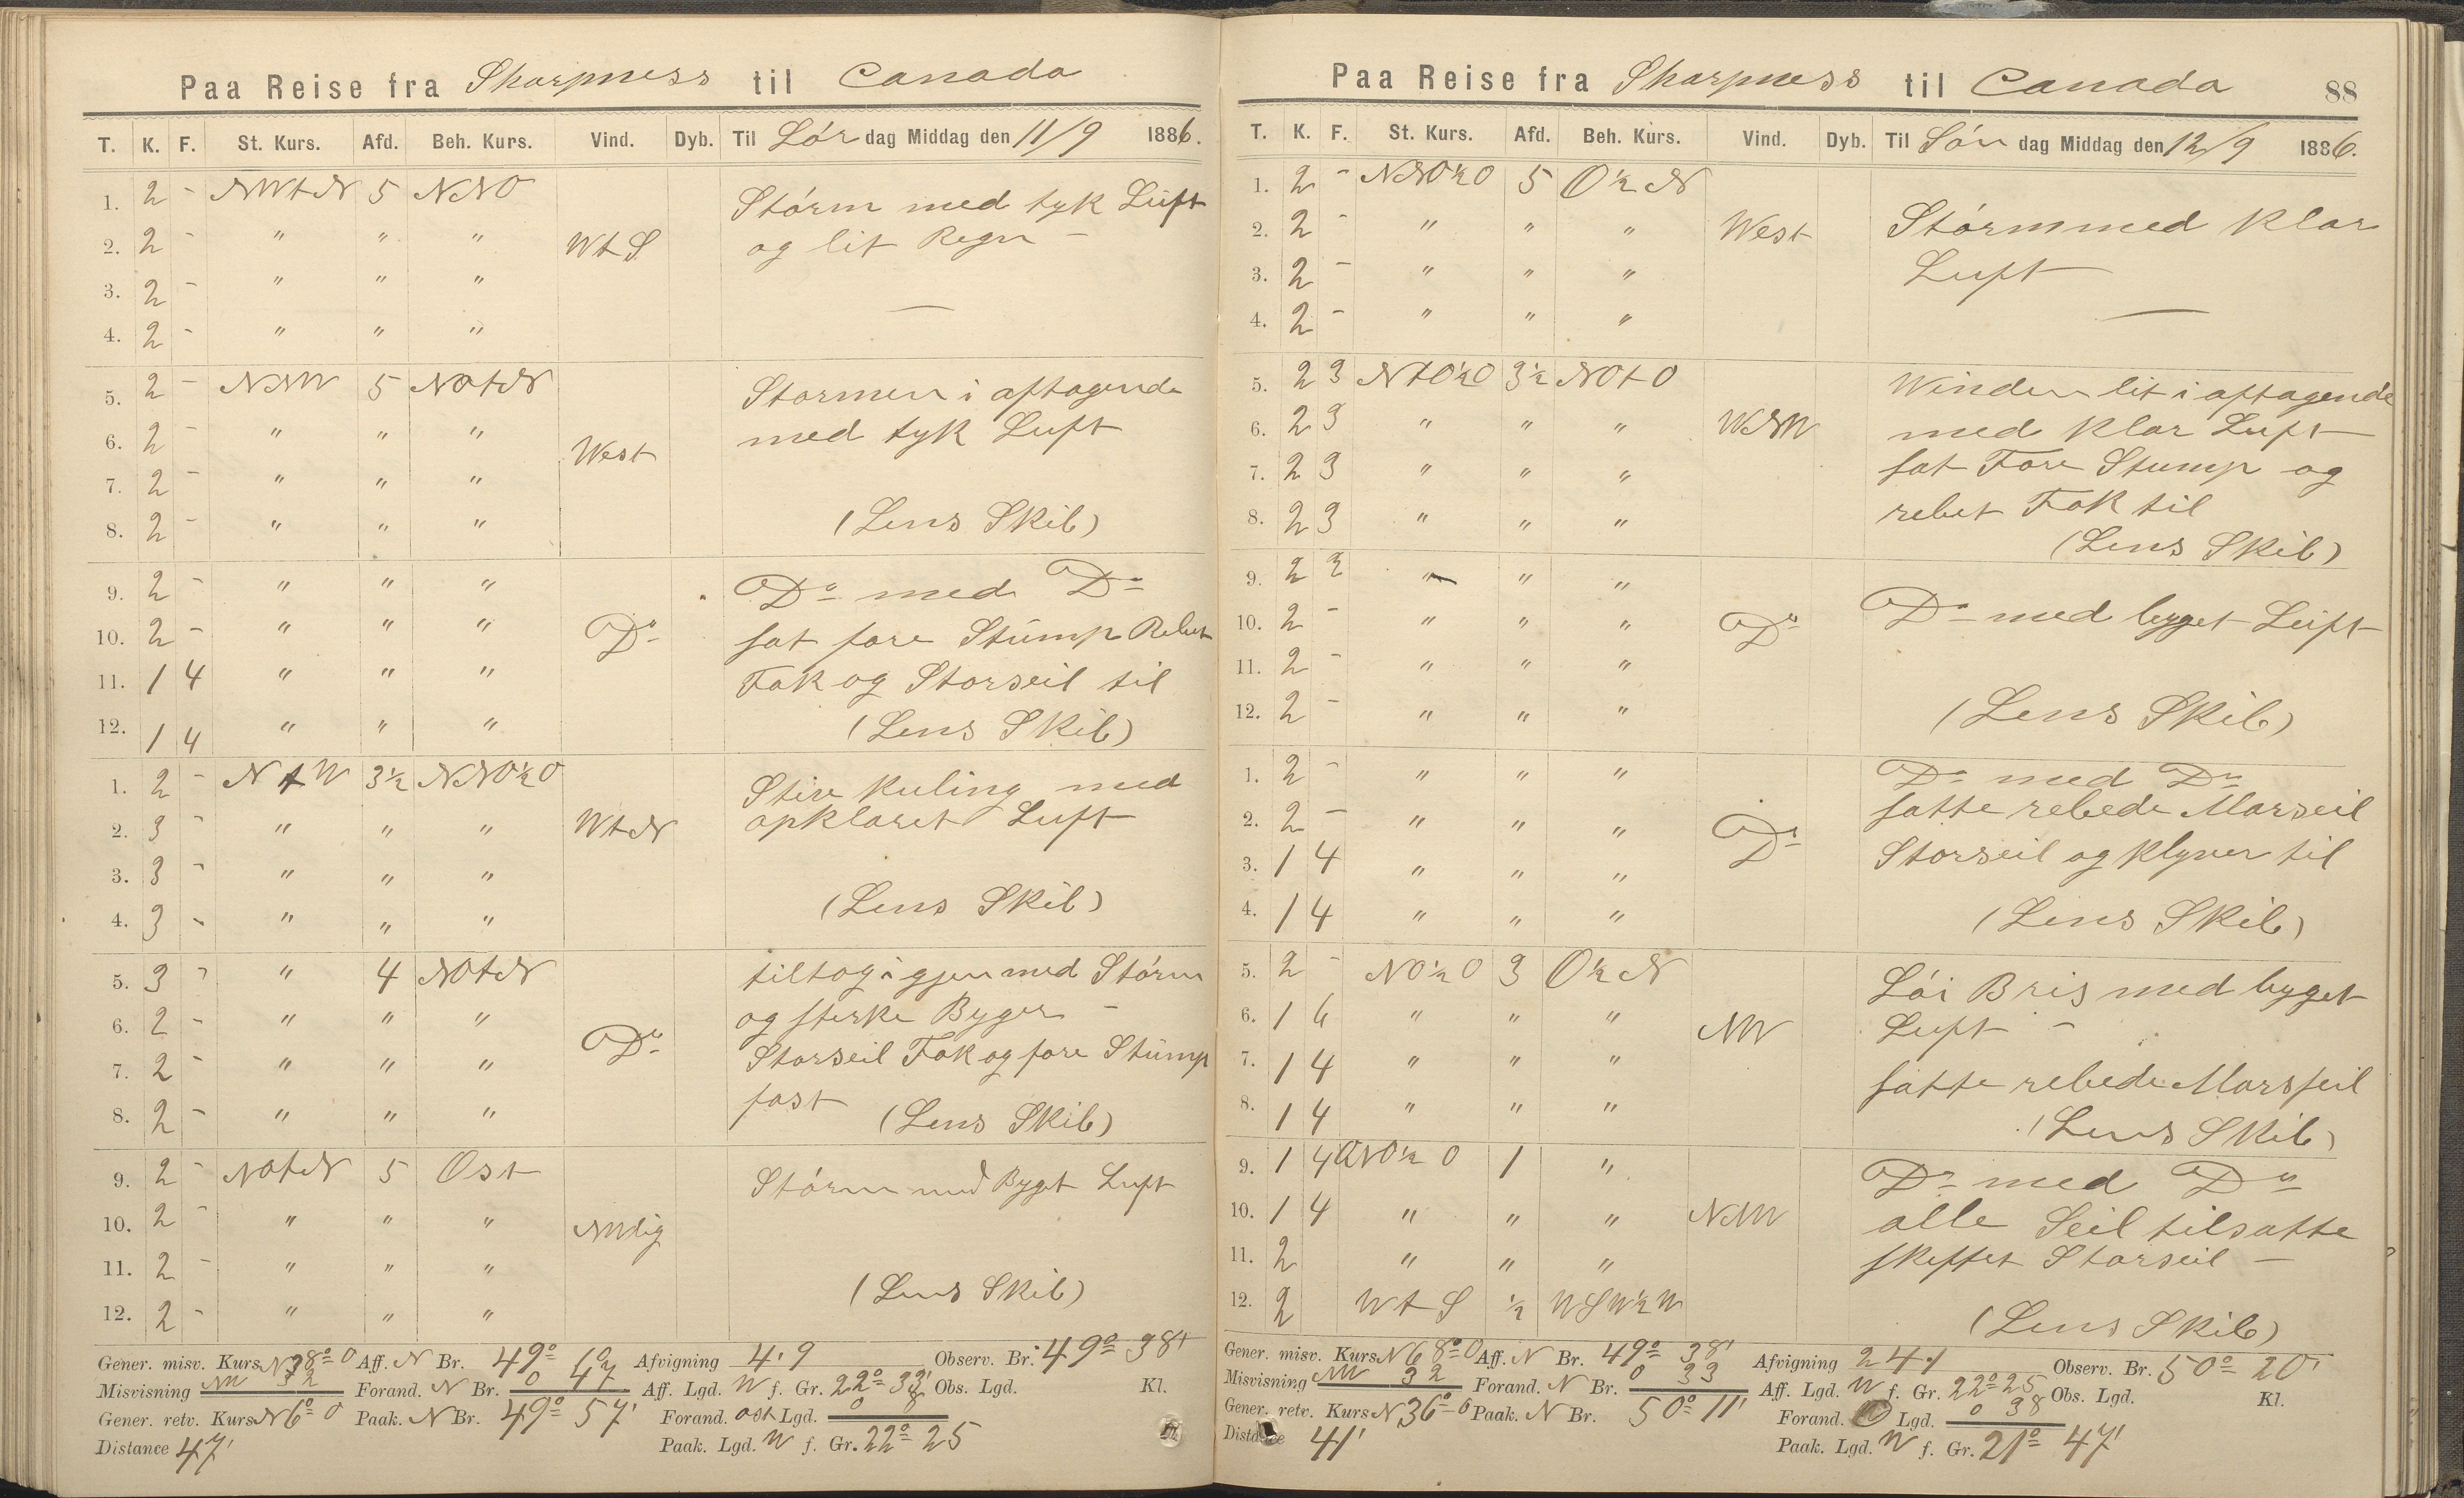 Paa Reise fra Sharpness til Canada
T. K. F. St. Kurs. Afd. Beh. Kurs. Vind. Dyb. Til Lør dag Middag den 11/9 1886.
1. 2 - NWtN 5 NNO Störm med tyk Luft
2. 2 - " " " WtS og lit Regn -
3. 2 - " " "
4. 2 - " " "
5. 2 - NNW 5 NOtN Stormen i aftagende
6. 2 - " " " med tyk Luft
7. 2 - " " " West
8. 2 - " " " (Lens Skib)
9. 2 - " " " Do med Do
10. 2 - " " " Do sat fore Stump Rebet
11. 1 4 " " " Fok og Storseil til
12. 1 4 " " " (Lens Skib)
1. 2 - NtW 3½ NNO½O Stiv Kuling med
2. 3 - " " " WtN opklaret Luft
3. 3 - " " "
4. 3 - " " " (Lens Skib)
5. 3 - " 4 NOtN tiltog igjen med Störm
6. 2 - " " " og sterke Byger -
7. 2 - " " " Do Storseil Fok og fore Stump
8. 2 - " " " fast (Lens Skib)
9. 2 - NOtN 5 Ost Störm med Byget Luft
10. 2 - " " " NWlig
11. 2 - " " "
12. 2 - " " " (Lens Skib)
Gener. misv. Kurs N 38° O Aff. N Br. 49° 10' Afvigning 4.9 Observ. Br. 49° 38'
Misvisning NW 32 Forand. N Br. 0 47 Aff. Lgd. W f. Gr. 22° 33' Obs. Lgd. Kl.
Gener. retv. Kurs N 6° O Paak. N Br. 49° 57' Forand. ost Lgd. 0 8
Distance 47' Paak. Lgd. W f. Gr. 22° 25
Paa Reise fra Sharpness til Canada 88
T. K. F. St. Kurs. Afd. Beh. Kurs. Vind. Dyb. Til Søn dag Middag den 12/9 1886.
1. 2 - NNO½O 5 O½N
2. 2 - " " " West Störm med klar
3. 2 - " " " Luft
4. 2 - " " "
5. 2 3 NtO½O 3½ NOtO Winden lit i aftagende
6. 2 3 " " " WNW med klar Luft
7. 2 3 " " " sat Fore Stump og
8. 2 3 " " " rebet Fok til
(Lens Skib)
9. 2 2 " " "
10. 2 - " " " Do Do med byget Luft
11. 2 - " " "
12. 2 - " " " (Lens Skib)
1. 2 - " " " Do med Do
2. 2 - " " " Do satte rebede Marseil
3. 1 4 " " " Storseil og Klyver til
4. 1 4 " " " (Lens Skib)
5. 2 - NO½O 3 O½N Löi Bris med byget
6. 1 6 " " " NW Luft -
7. 1 4 " " " satte rebede Marsseil
8. 1 4 " " " (Lens Skib)
9. 1 4 ONO½O 1 " Do med Do
10. 1 4 " " " NNW alle Seil tilsatte
11. 2 " " " skiftet Storseil -
12. 2 WtS ½ WSW½W (Lens Skib)
Gener. misv. Kurs N 68° O Aff. N Br. 49° 38' Afvigning 24.1 Observ. Br. 50° 20'
Misvisning NW 32 Forand. N Br. 0 33 Aff. Lgd. W f. Gr. 22° 25 Obs. Lgd. Kl.
Gener. retv. Kurs N 36° O Paak. N Br. 50° 11' Forand. O Lgd. 0 38
Distance 41' Paak. Lgd. W f. Gr. 21° 47'